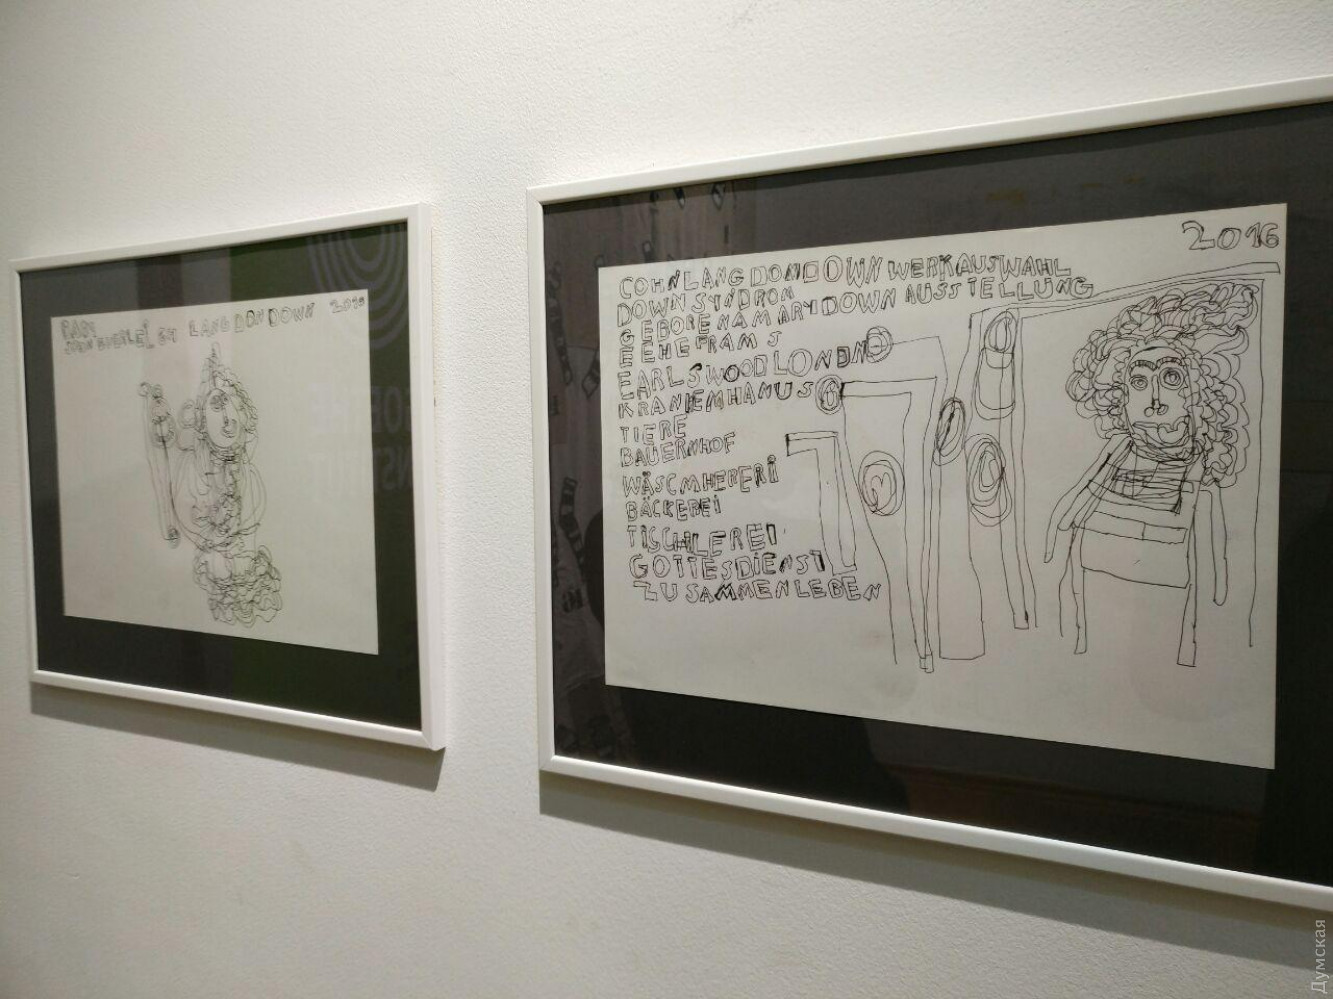 LANGDON DOWN 2016
2016
COHN LANGDONDOWN WERKAUSWAHL
DOWN SYNDROM
GEBORENAMARYDOWN AUSSTELLUNG
EEHEFRAM J
EARLSWOODLONDN
KRANIEMHANUS
TIERE
BAUERNHOF
WÄSCMHEREREI
BÄCKEREI
TISCHLEREI
GOTTESDIENST
ZUSAMMENLEBEN
Думская